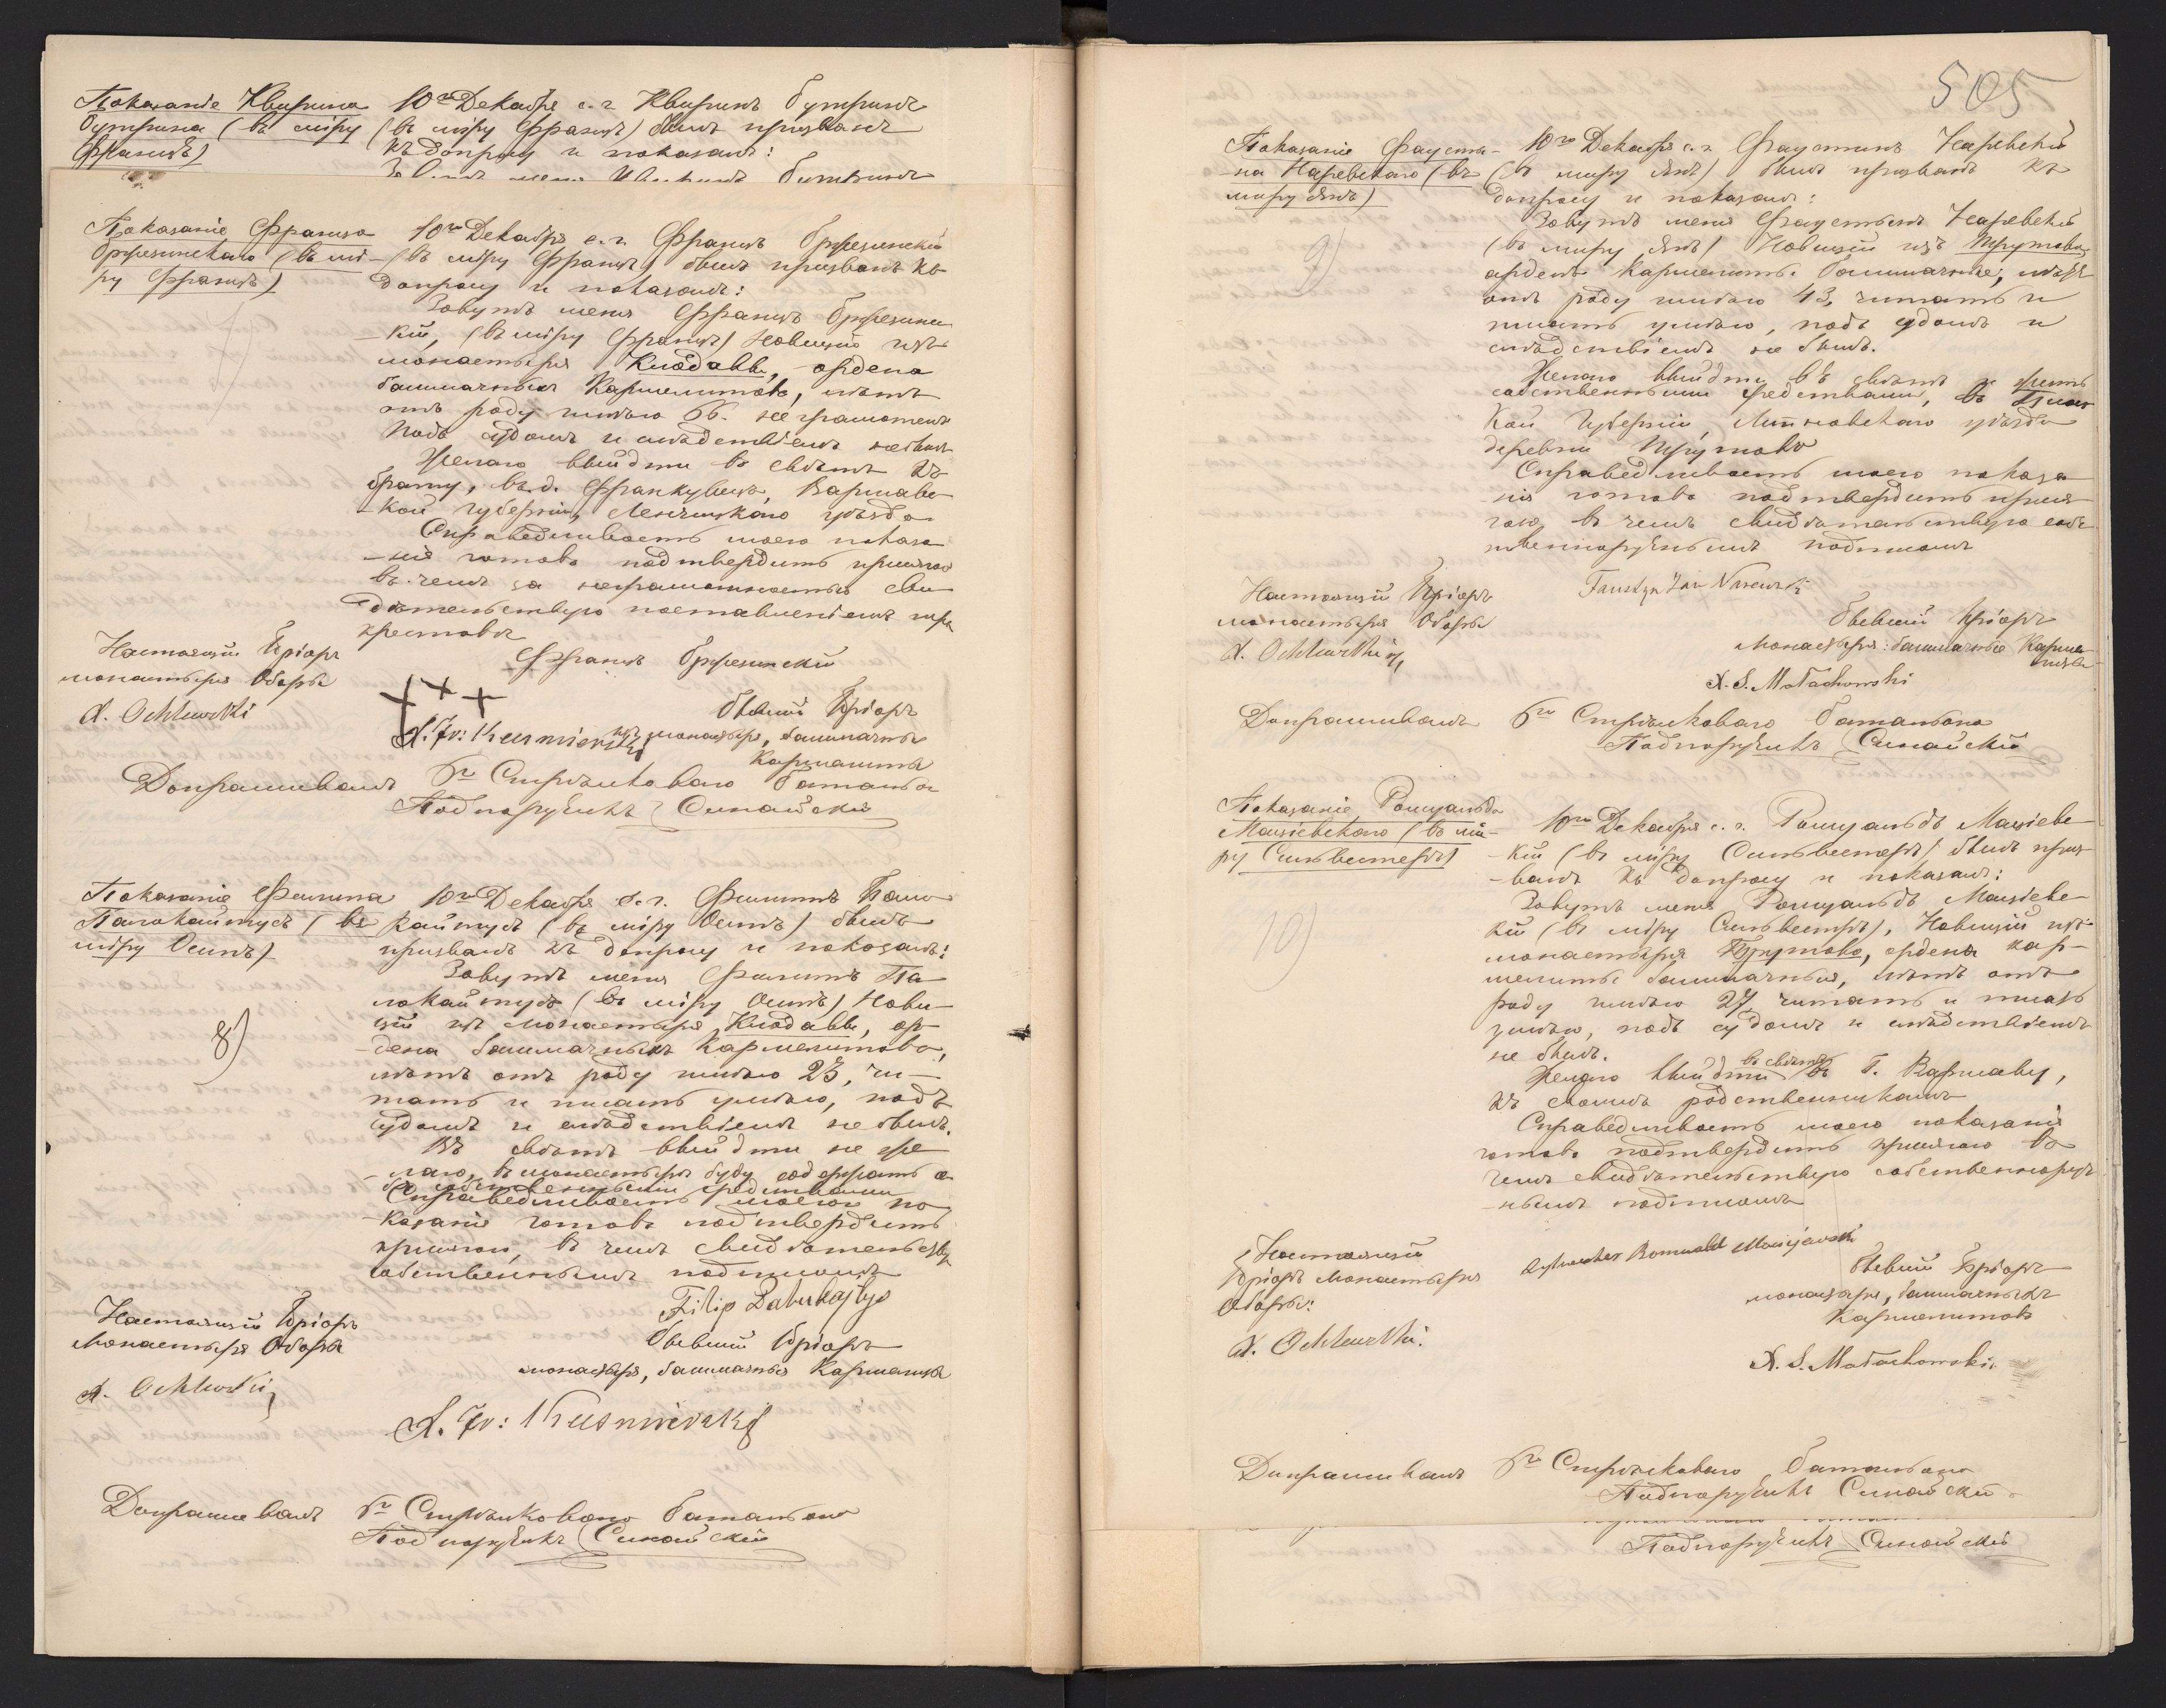 Показаніе Квирина
Бутрина (въ міру
Францъ)
10го Декабря с. г. Квиринъ Бутринъ
(въ міру Францъ) былъ призванъ
къ допросу и показалъ:
Зовутъ меня Квиринъ Бутринъ
Показаніе Франца
Бржезинскаго (въ мі-
ру Францъ)
7)
10го Декабря с. г. Францъ Бржезинскій
(въ міру Францъ) былъ призванъ къ
допросу и показалъ:
Зовутъ меня Францъ Бржезинс
-кій, (въ міру Францъ) Новицій изъ
монастыря Клодавы, ордена
башмачныхъ Кармелитовъ, летъ
отъ роду имѣю 66. не грамотенъ
подъ судомъ и слѣдствіемъ не былъ
Желаю выйдти въ свѣтъ къ
брату, въ д. Франкубецъ, Варшавс-
-кой губерніи, Ленчицкаго уѣзда
Справедливость моего показа
-нія готовъ подтвердить присягою
въ чемъ за неграмотностью сви
дѣтельствую поставленіемъ трехъ
крестовъ
Францъ Бржезинскій
+++
Настоящій Пріоръ
монастыря Оборы
X. Ochlewski
Бывшій Пріоръ
монастыря, башмачные
Кармелиты
X. Fr: Kusmierski
Допрашивалъ 6го Стрѣлковаго баталіона
Подпоручикъ Синайскій
Показаніе Филипа
Палокайтусъ (въ
міру Осипъ)
8)
10го Декабря с. г. Филипъ Пало
кайтусъ (въ міру Осипъ) былъ
призванъ къ допросу и показалъ:
Зовутъ меня Филипъ Па
локайтусъ (въ міру Осипъ) Нови
цій изъ монастыря Клодавы, ор-
-дена башмачныхъ Кармелитовъ,
летъ отъ роду имѣю 23, чи-
тать и писать умѣю, подъ
судомъ и слѣдствіемъ не былъ.
Въ свѣтъ выйдти не же
-лаю, въ монастырѣ буду содержать се
бя собственными средствами
Справедливость моего по
-казанія готовъ подтвердить
присягою, въ чемъ свидѣтельствую
собственнымъ подписомъ
Настоящій Пріоръ
Монастыря Оборы
X. Ochlewski
Filip Palukajtys
Бывшій Пріоръ
монастыря, башмачныя Кармелиты
X. Fr: Kusmierski
Допрашивалъ 6го Стрѣлковаго баталіона
Подпоручикъ Синайскій
505
Показаніе Фаусти-
-на Наревскаго (въ
миру Янъ)
9)
10го Декабря с. г. Фаустинъ Наревскій
(въ миру Янъ) былъ призванъ къ
допросу и показалъ:
Зовутъ меня Фаустынъ Наревскій
(въ миру Янъ) Новицій изъ Трутова
орденъ Кармелиты башмачные, летъ
отъ роду имѣю 43, читать и
писать умѣю, подъ судомъ и
слѣдствіемъ не былъ.
Желаю выйдти въ свѣтъ и жить
собственными средствами, въ Плоц
кой губерніи, Липновскаго уѣзда
деревни Трутово
Справедливость моего показа
-нія готовъ подтвердить прися
гою, въ чемъ свидѣтельствую собс
твенноручнымъ подписомъ
Faustyn Jan Narewski
Настоящій Пріоръ
монастыря Оборы
X. Ochlewski
Бывшій Пріоръ
Монастыря: башмачные Карме
литы
X. S. Małachowski
Допрашивалъ 6го Стрѣлковаго баталіона
Подпоручикъ Синайскій
Показаніе Ромуальда
Мацѣевскаго (въ мі-
ру Сильвестеръ)
10)
10го Декабря с. г. Ромуальдъ Мацѣевс
-кій (въ міру Сильвестеръ) былъ приз
-ванъ къ допросу и показалъ:
Зовутъ меня Ромуальдъ Мацѣевс
кій (въ міру Сильвестръ), Новицій изъ
монастыря Трутово, ордена кар-
мелиты башмачныя, летъ отъ
роду имѣю 27, читать и писать
умѣю, подъ судомъ и слѣдствіемъ
не былъ.
Желаю выйдти въ свѣтъ въ Г. Варшаву,
къ своимъ родственникамъ
Справедливость моего показанія
готовъ подтвердить присягою въ
чемъ свидѣтельствую собственноруч
-нымъ подписомъ
Sylwester Romuald Maciejewski
Настоящій
Пріоръ Монастыря
Оборы:
X. Ochlewski.
Бывшій Пріоръ
монастыря, башмачныхъ
Кармелитовъ
X. S. Małachowski.
Допрашивалъ 6го Стрѣлковаго баталіона
Подпоручикъ Синайскій
Подпоручикъ Синайскій